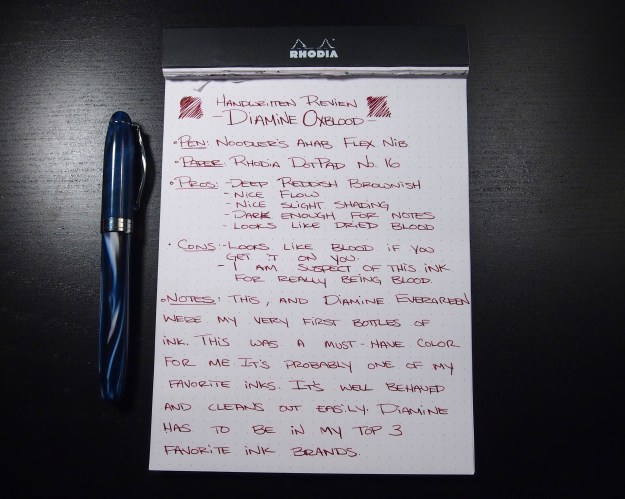 RHODIA
HANDWRITTEN REVIEW
- DIAMINE OXBLOOD -
• PEN: NOODLER'S AHAB FLEX NIB
• PAPER: RHODIA DOTPAD NO. 16
• PROS: - DEEP REDDISH BROWNISH
- NICE FLOW
- NICE SLIGHT SHADING
- DARK ENOUGH FOR NOTES
- LOOKS LIKE DRIED BLOOD
• CONS: - LOOKS LIKE BLOOD IF YOU
GET IT ON YOU.
- I AM SUSPECT OF THIS INK
FOR REALLY BEING BLOOD.
• NOTES: THIS, AND DIAMINE EVERGREEN
WERE MY VERY FIRST BOTTLES OF
INK. THIS WAS A MUST-HAVE COLOR
FOR ME IT'S PROBABLY ONE OF MY
FAVORITE INKS. IT'S WELL BEHAVED
AND CLEANS OUT EASILY. DIAMINE
HAS TO BE IN MY TOP 3
FAVORITE INK BRANDS.